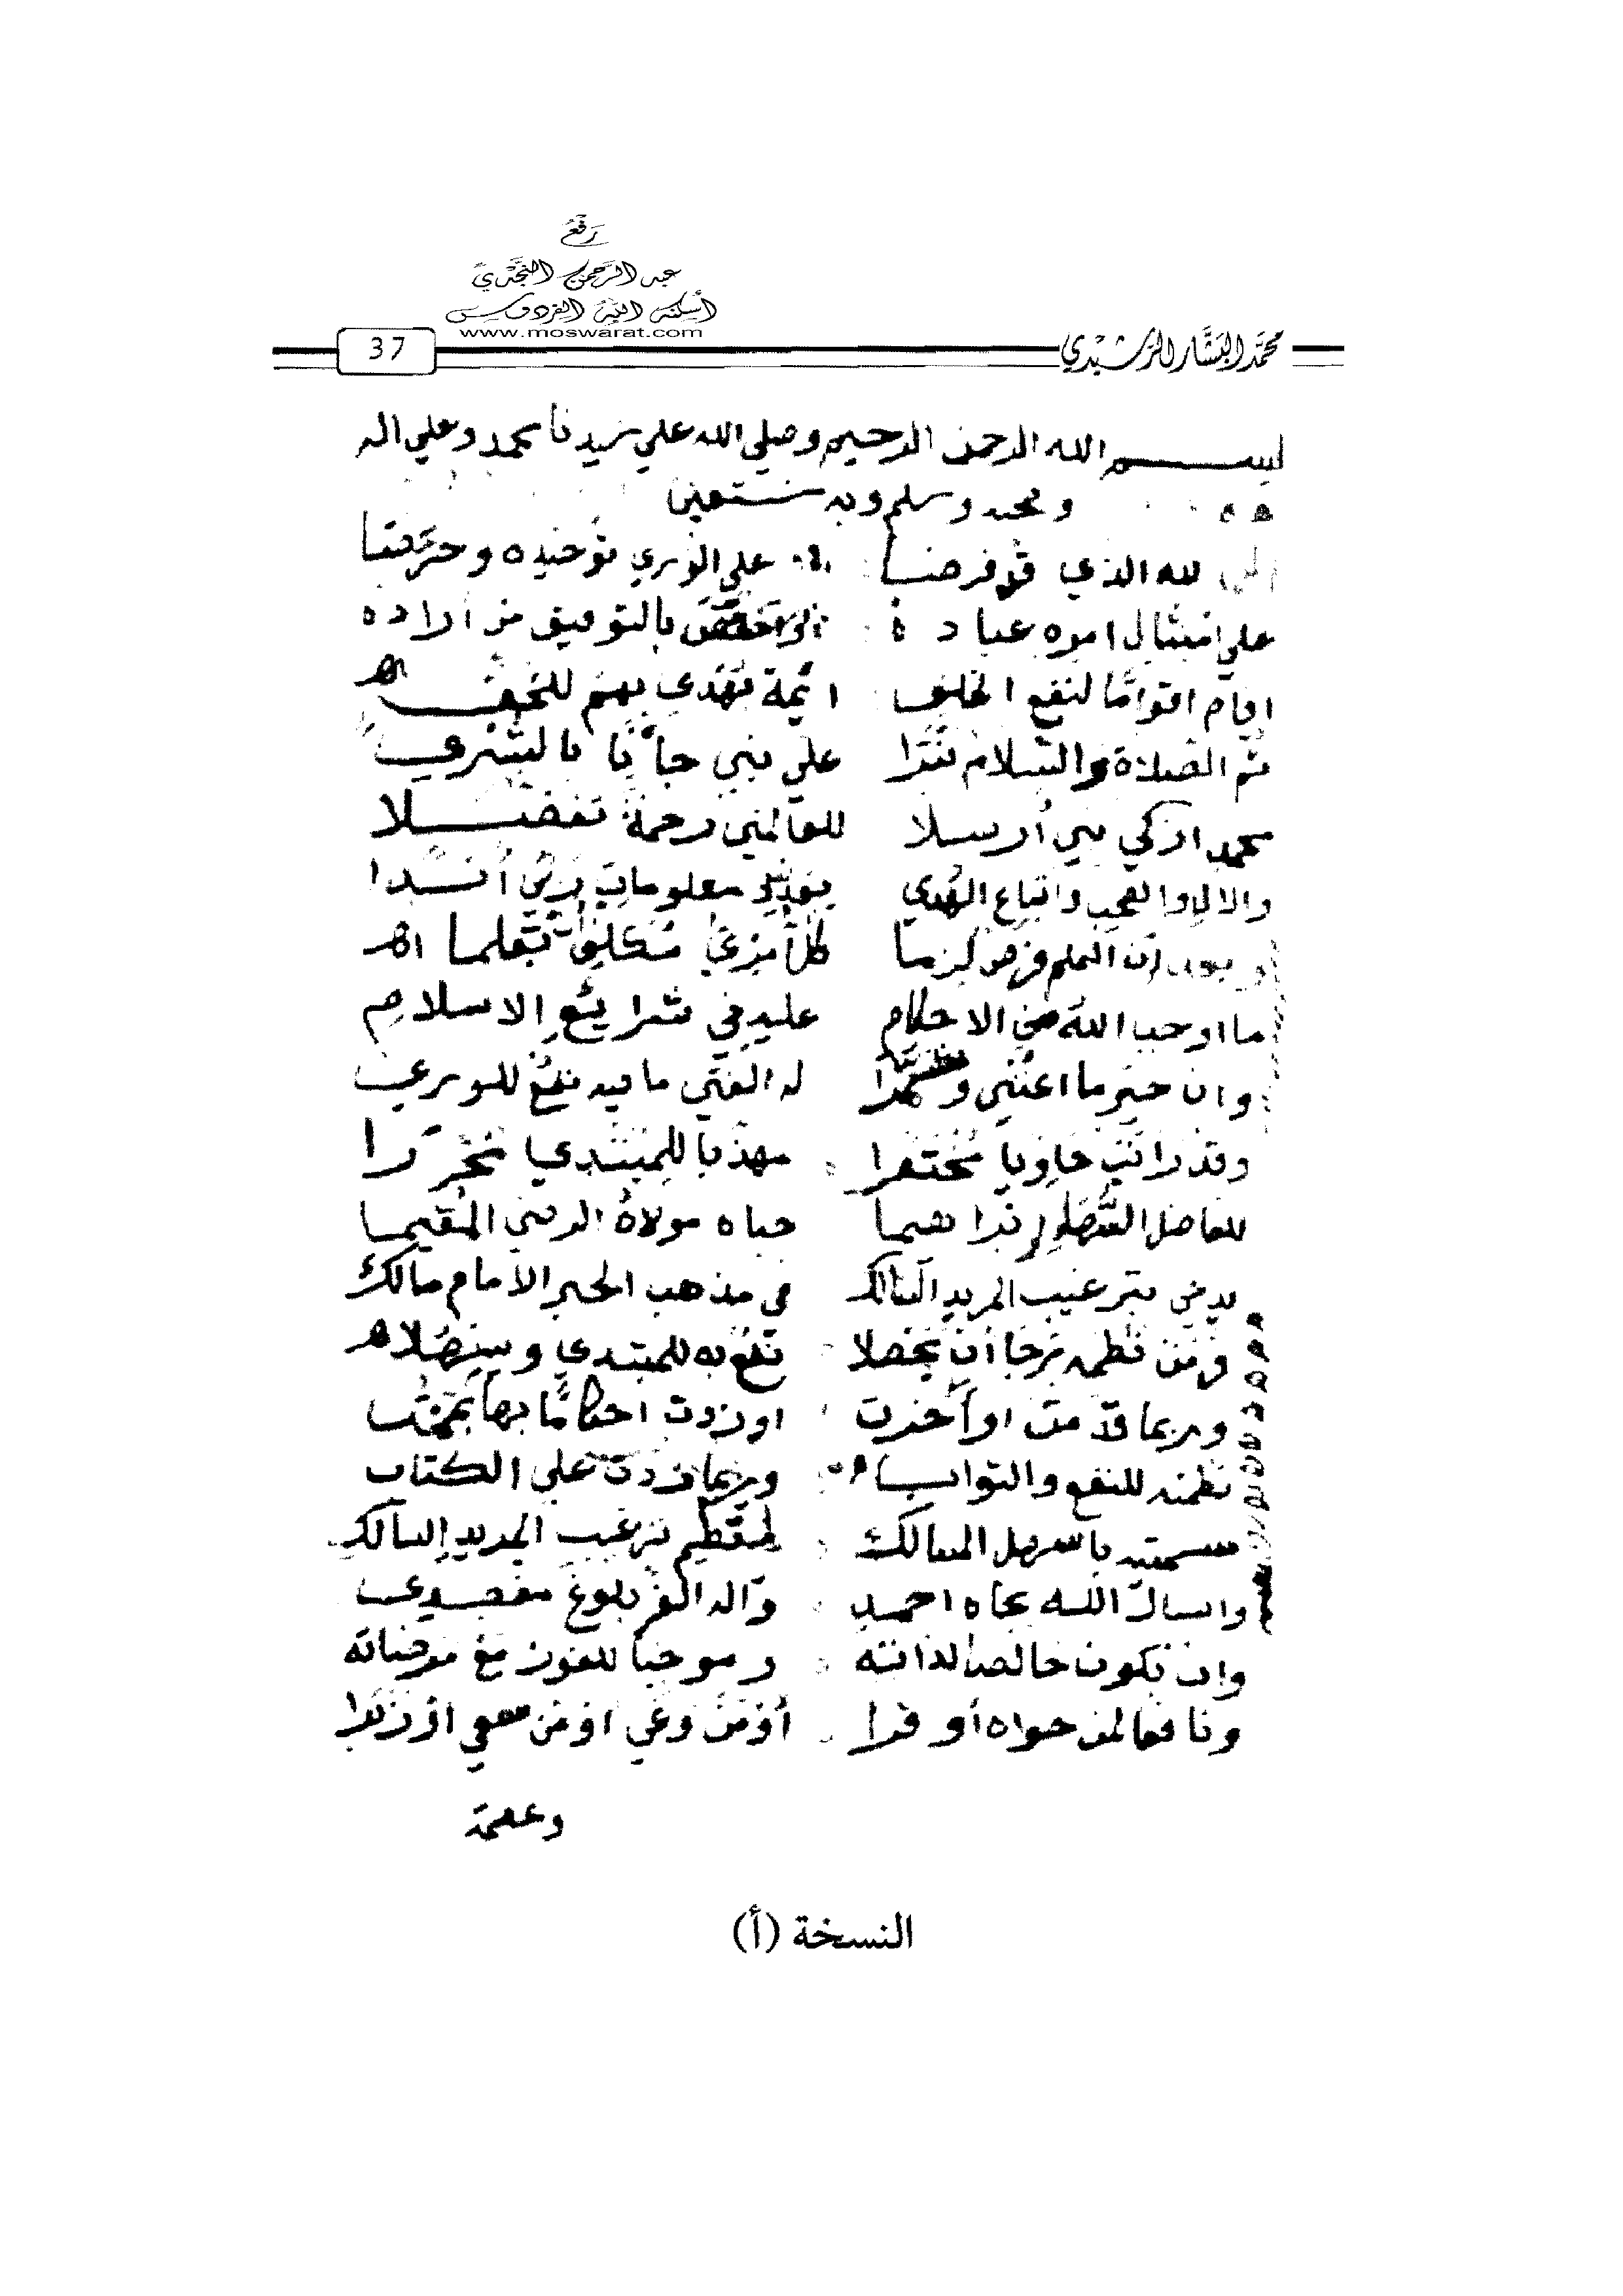 رفع
عبد الرحمن النجدي
أسكنه الله الفردوس
www.moswarat.com
محمد البشار الرشيدي
37
بسم الله الرحمن الرحيم وصلي الله علي سيدنا محمد وعلي اله
و صحبه وسلم وبه نستعين
لله الذي قد فرضا علي الوري توحيده وحرضا
علي امتثال امره عباده بالتوفيق من اراده
اقام اقواما لنفع الخلق ائمة تهدي بهم للحق
ثم الصلاة والسلام تترا علي نبي جاءنا بالبشري
محمد ازكي نبي أرسلا للعالمين رحمة تفضلا
والال والصحب واتباع الهدي بعد معلومات ربي أبدا
وبعد ان العلم فرض لزما كل أمرئ مكلف تعلما
ما اوجب الله من الاحكام عليه في شرايع الاسلام
وان خير ما اعتني و له الفتي ما فيه نفع للوري
وقد رأيت حاويا مختصرا مهذبا للمبتدي محررا
للفاضل ابراهيما حباه مولاه الرضي المقيما
يدعي بترغيب المريد السالك في مذهب الحبر الامام مالك
ورمت نظمه برجا أن يحصلا نفع به للمبتدي ويسهلا
وربما قدمت او أخرت اوزدت احكاما بها تممت
نظمته للنفع والثواب وربما زدت علي الكتاب
سميته باسهل المسالك لنظم ترغيب المريد السالك
واسال الله بجاه احمد وآله الغر بلوغ مقصدي
وان تكون خالصا لذاته وموجبا للفوز مع مرضاته
ونافعا لمن حواه أو قرا أو من وعي او من سعي اوزبرا
وعصمة
النسخة (أ)